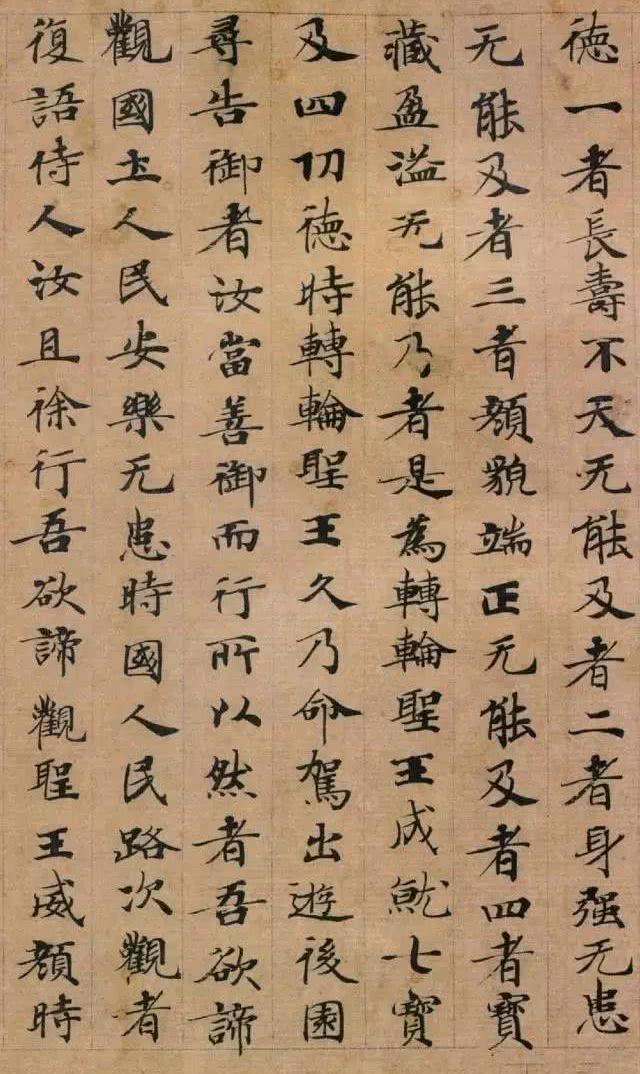 德一者長壽不夭无能及者二者身强无患
无能及者三者顏貌端正无能及者四者寶
藏盈溢无能乃者是為轉輪聖王成就七寶
及四切德時轉輪聖王久乃命駕出遊後園
尋告御者汝當善御而行所以然者吾欲諦
觀國土人民安樂无患時國人民路次觀者
復語侍人汝且徐行吾欲諦觀聖王威顏時